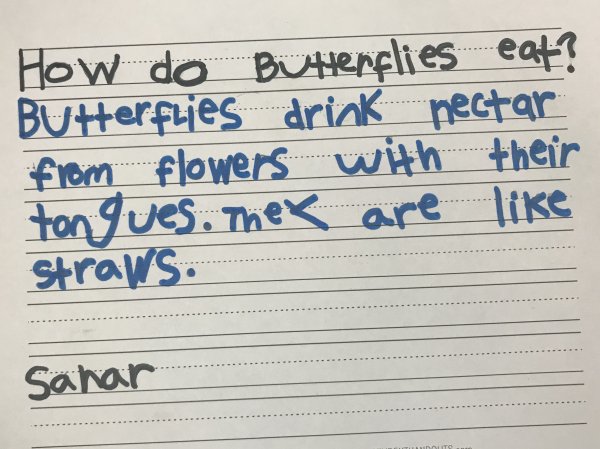 How do Butterflies eat?
Butterflies drink nectar
from flowers with their
tongues. They are like
straws.
Sahar